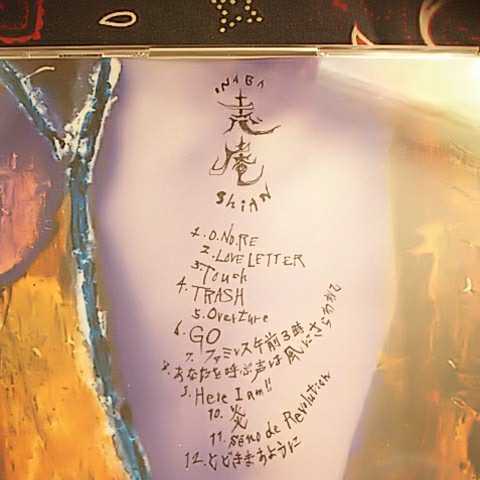 INABA
志庵
ShiAN
1. O.NO.RE
2. LOVE LETTER
3. Touch
4. TRASH
5. Overture
6. GO
7. ファミレス午前3時
8. あなたを呼ぶ声は風にさらわれて
9. Here I am!!
10. 炎
11. Seno de Revolution
12. とどきますように